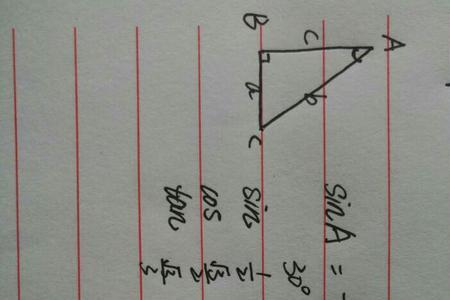 A
c b
B a C
sinA =
30°
sin 1/2
cos √3/2
tan √3/3